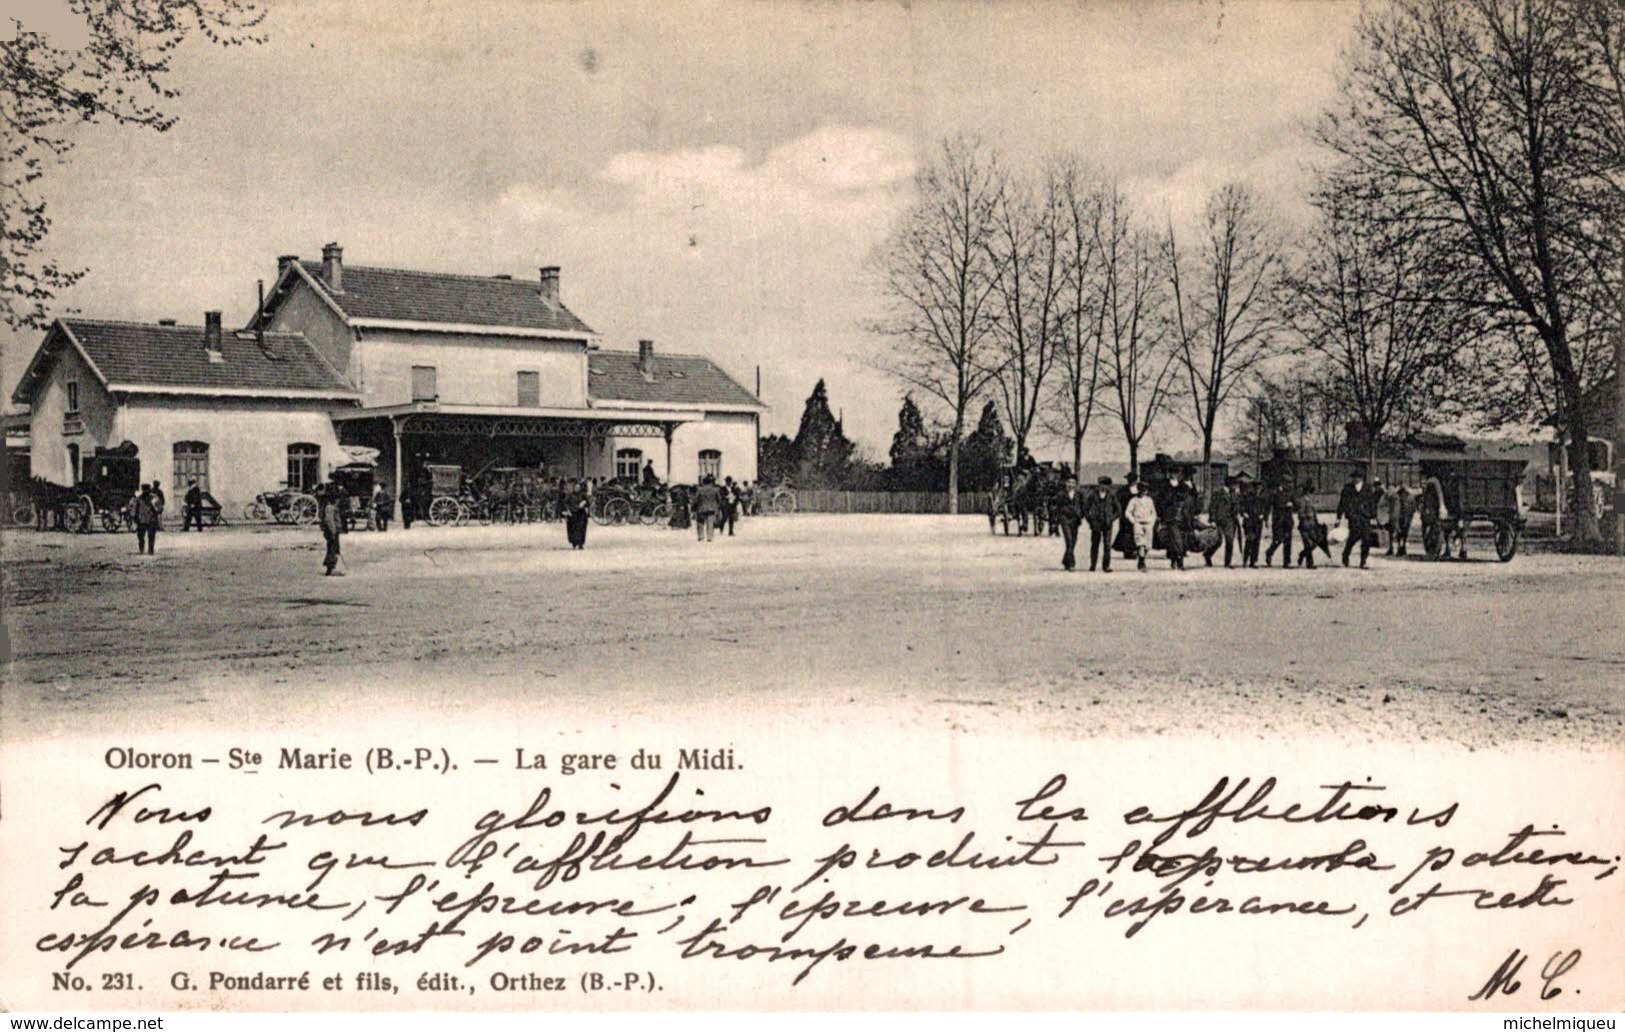 Oloron – Ste Marie (B.-P.). — La gare du Midi.
Nous nous glorifions dans les afflictions
sachant que l'affliction produit la patience;
la patience, l'épreuve; l'épreuve, l'espérance, et cette
espérance n'est point trompeuse
No. 231. G. Pondarré et fils, édit., Orthez (B.-P.).
M C.
www.delcampe.net
michelmiqueu